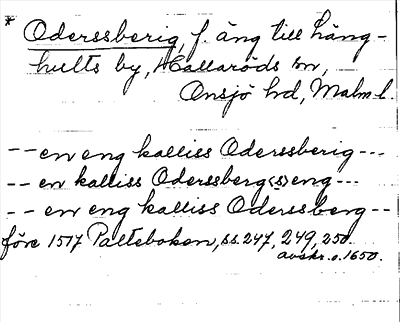 * Oderssberig, f. äng till Häng-
hults by, Hallaröds sn,
Onsjö hd, Malm l.
-- en eng kalliss Oderssberig ---
-- en kalliss Oderssberg(s)eng ---
-- en eng kalliss Oderssberg --
före 1517 Palteboken, ss. 247, 249, 250.
avskr. o. 1650.